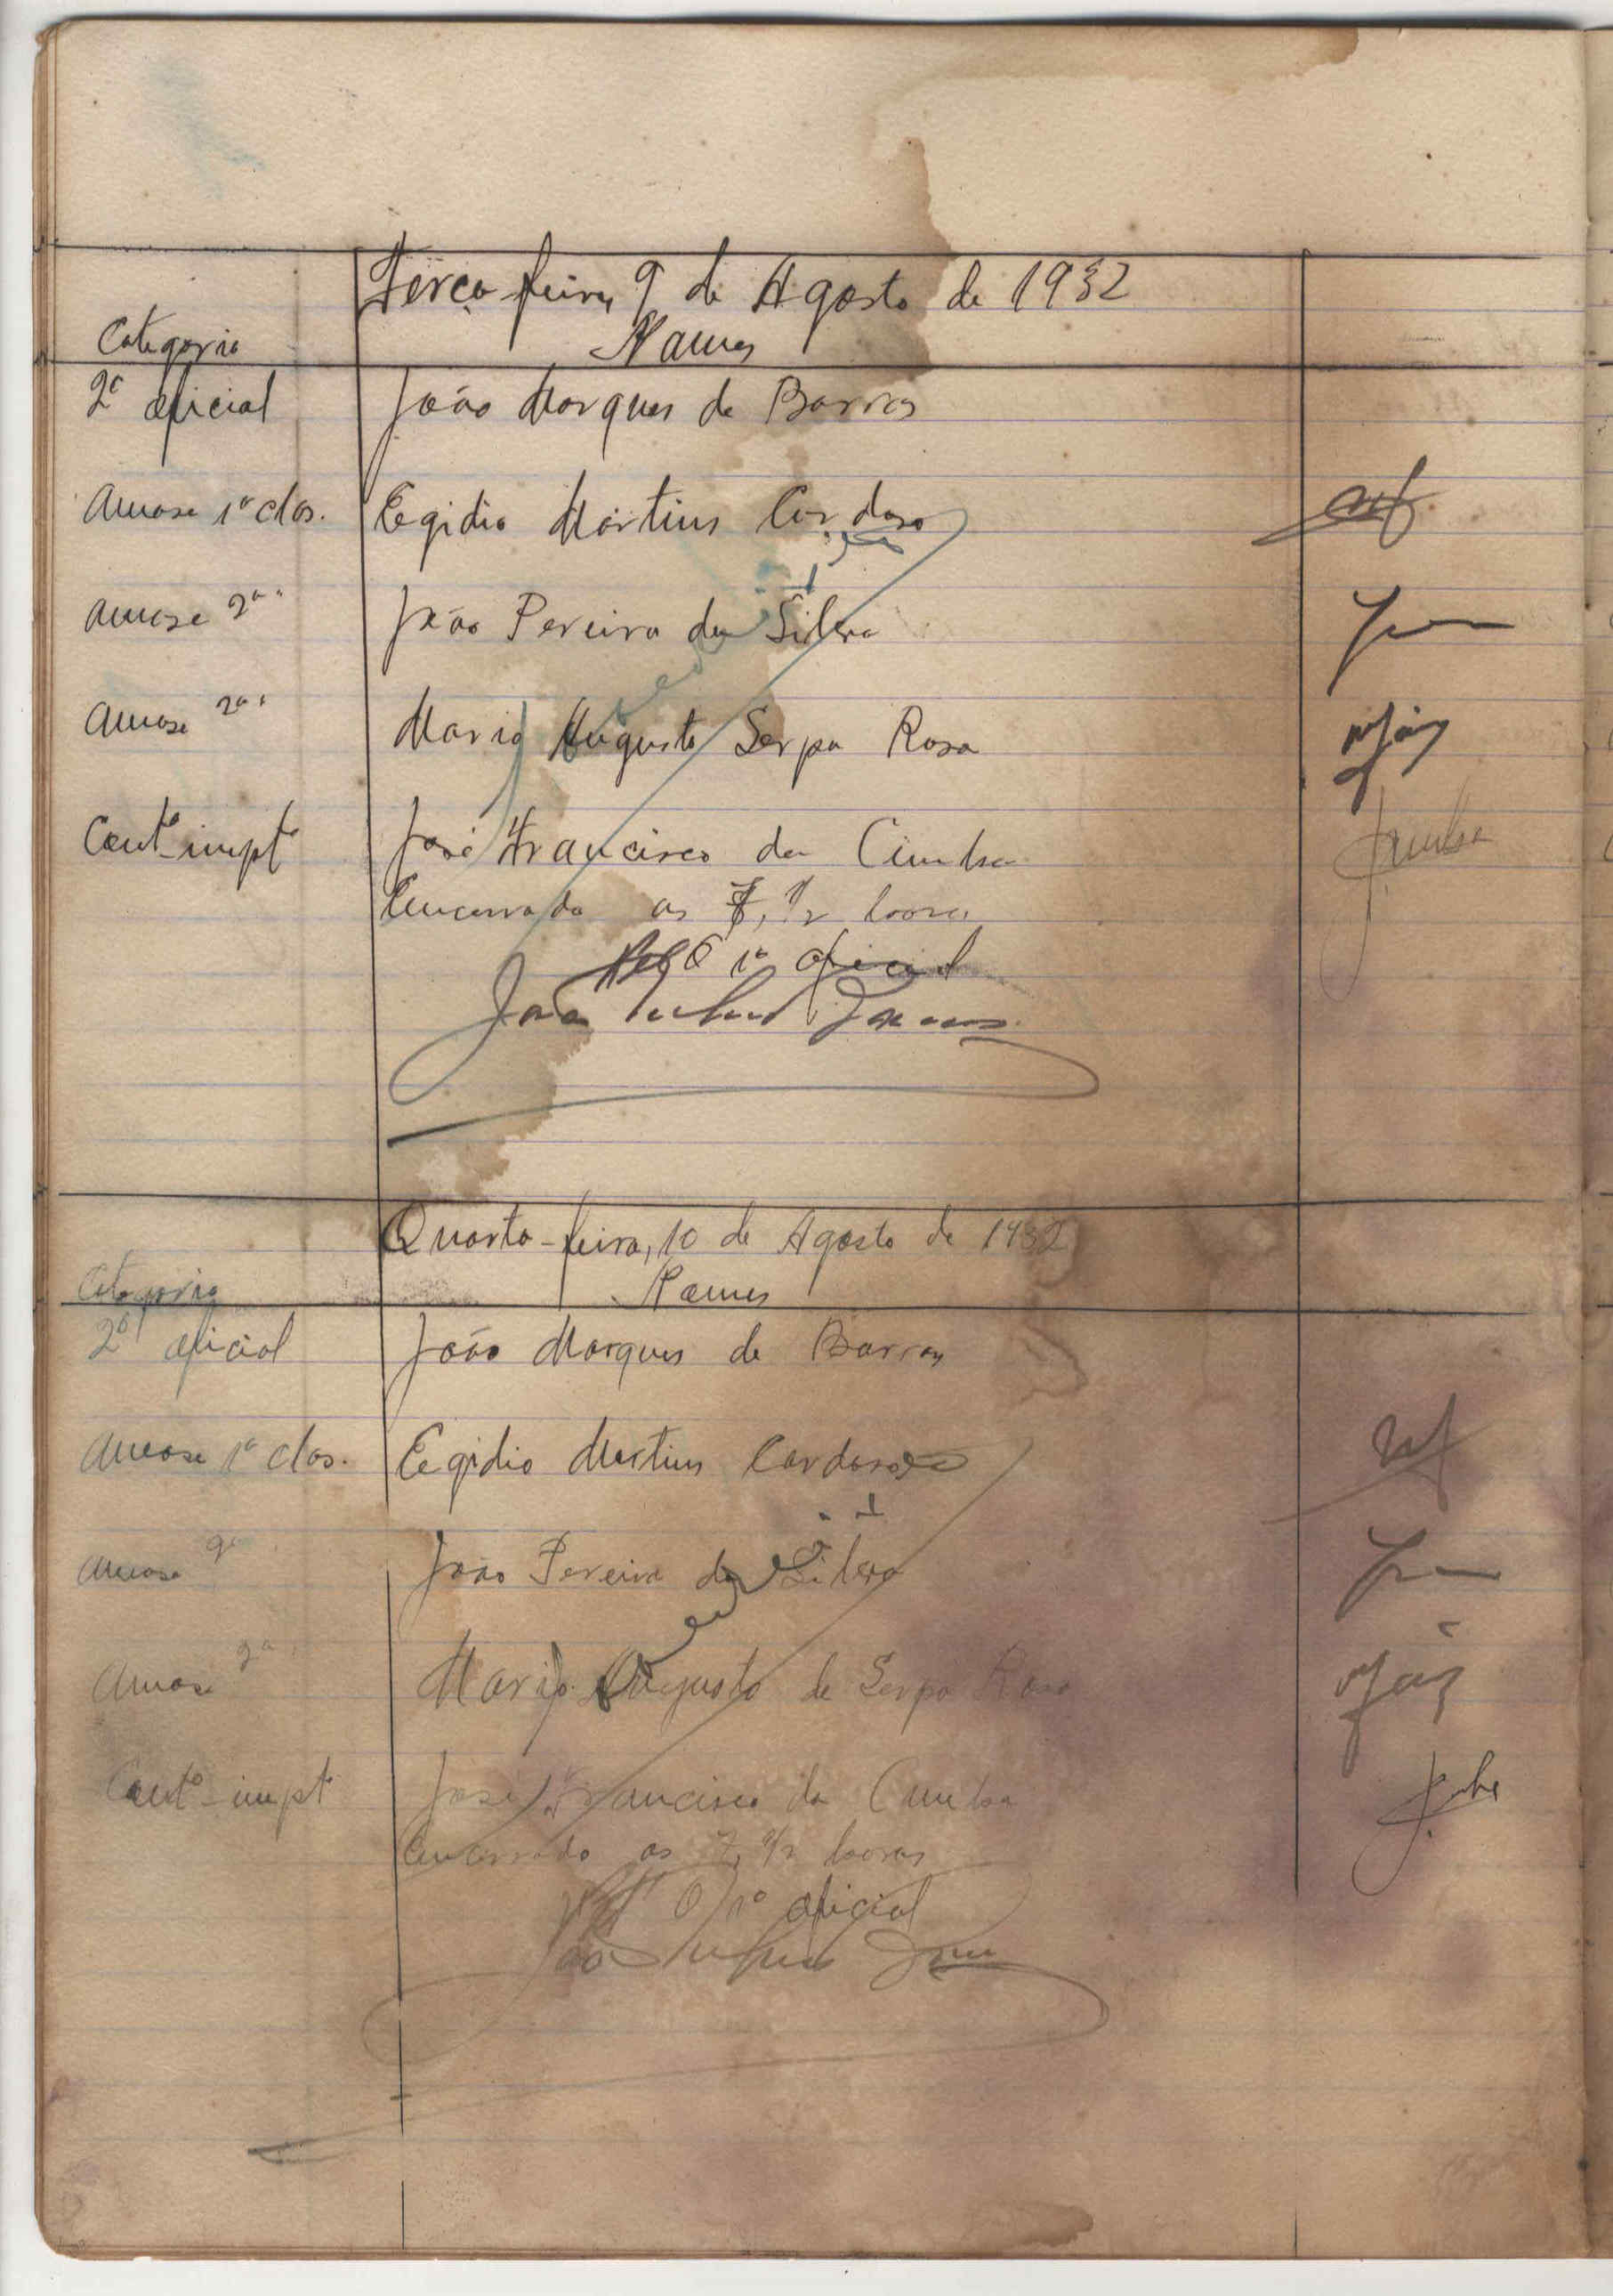 Terça-feira, 9 de Agosto de 1932
Categoria Nomes
2º oficial João Marques de Barros
Amase 1ª clas. Egidio Martins Cardoso
Amase 2ª " João Pereira da Silva
Amase 2ª " Mario Augusto Serpa Rosa
Contº impto José Francisco da Cunha
Encerrado as 7, 1/2 horas
O 1º oficial
João
Quarta-feira, 10 de Agosto de 1932
Categoria Nomes
2º oficial João Marques de Barros
Amase 1ª clas. Egidio Martins Cardoso
Amase 2ª João Pereira da Silva
Amase 2ª Mario Augusto de Serpa Rosa
Contº impto José Francisco da Cunha
Encerrado as 7, 1/2 horas
O 1º oficial
João